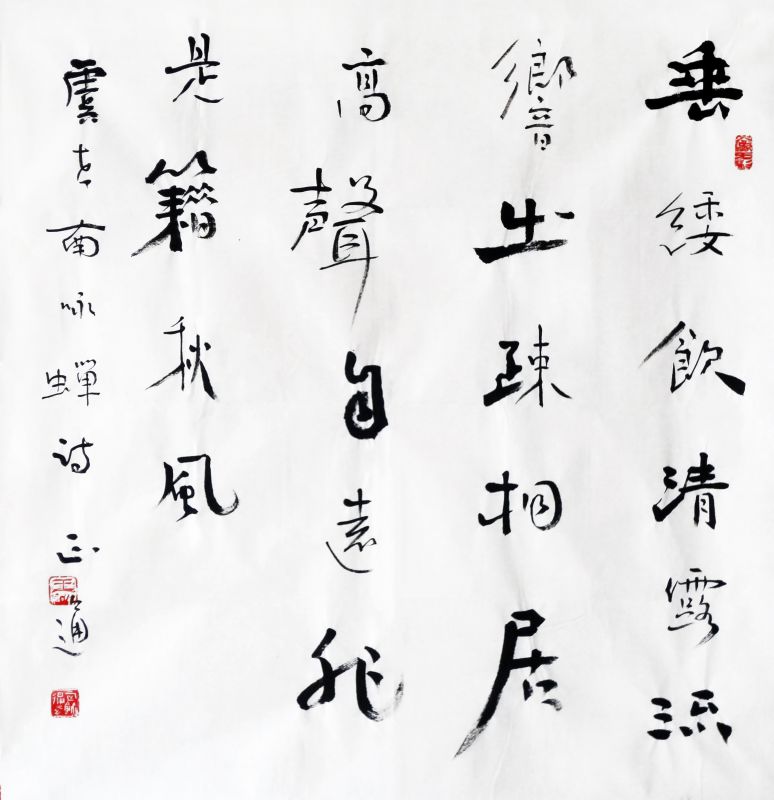 垂緌飲清露流
響出疎桐居
高聲自遠非
是籍秋風
虞世南咏蝉诗正通